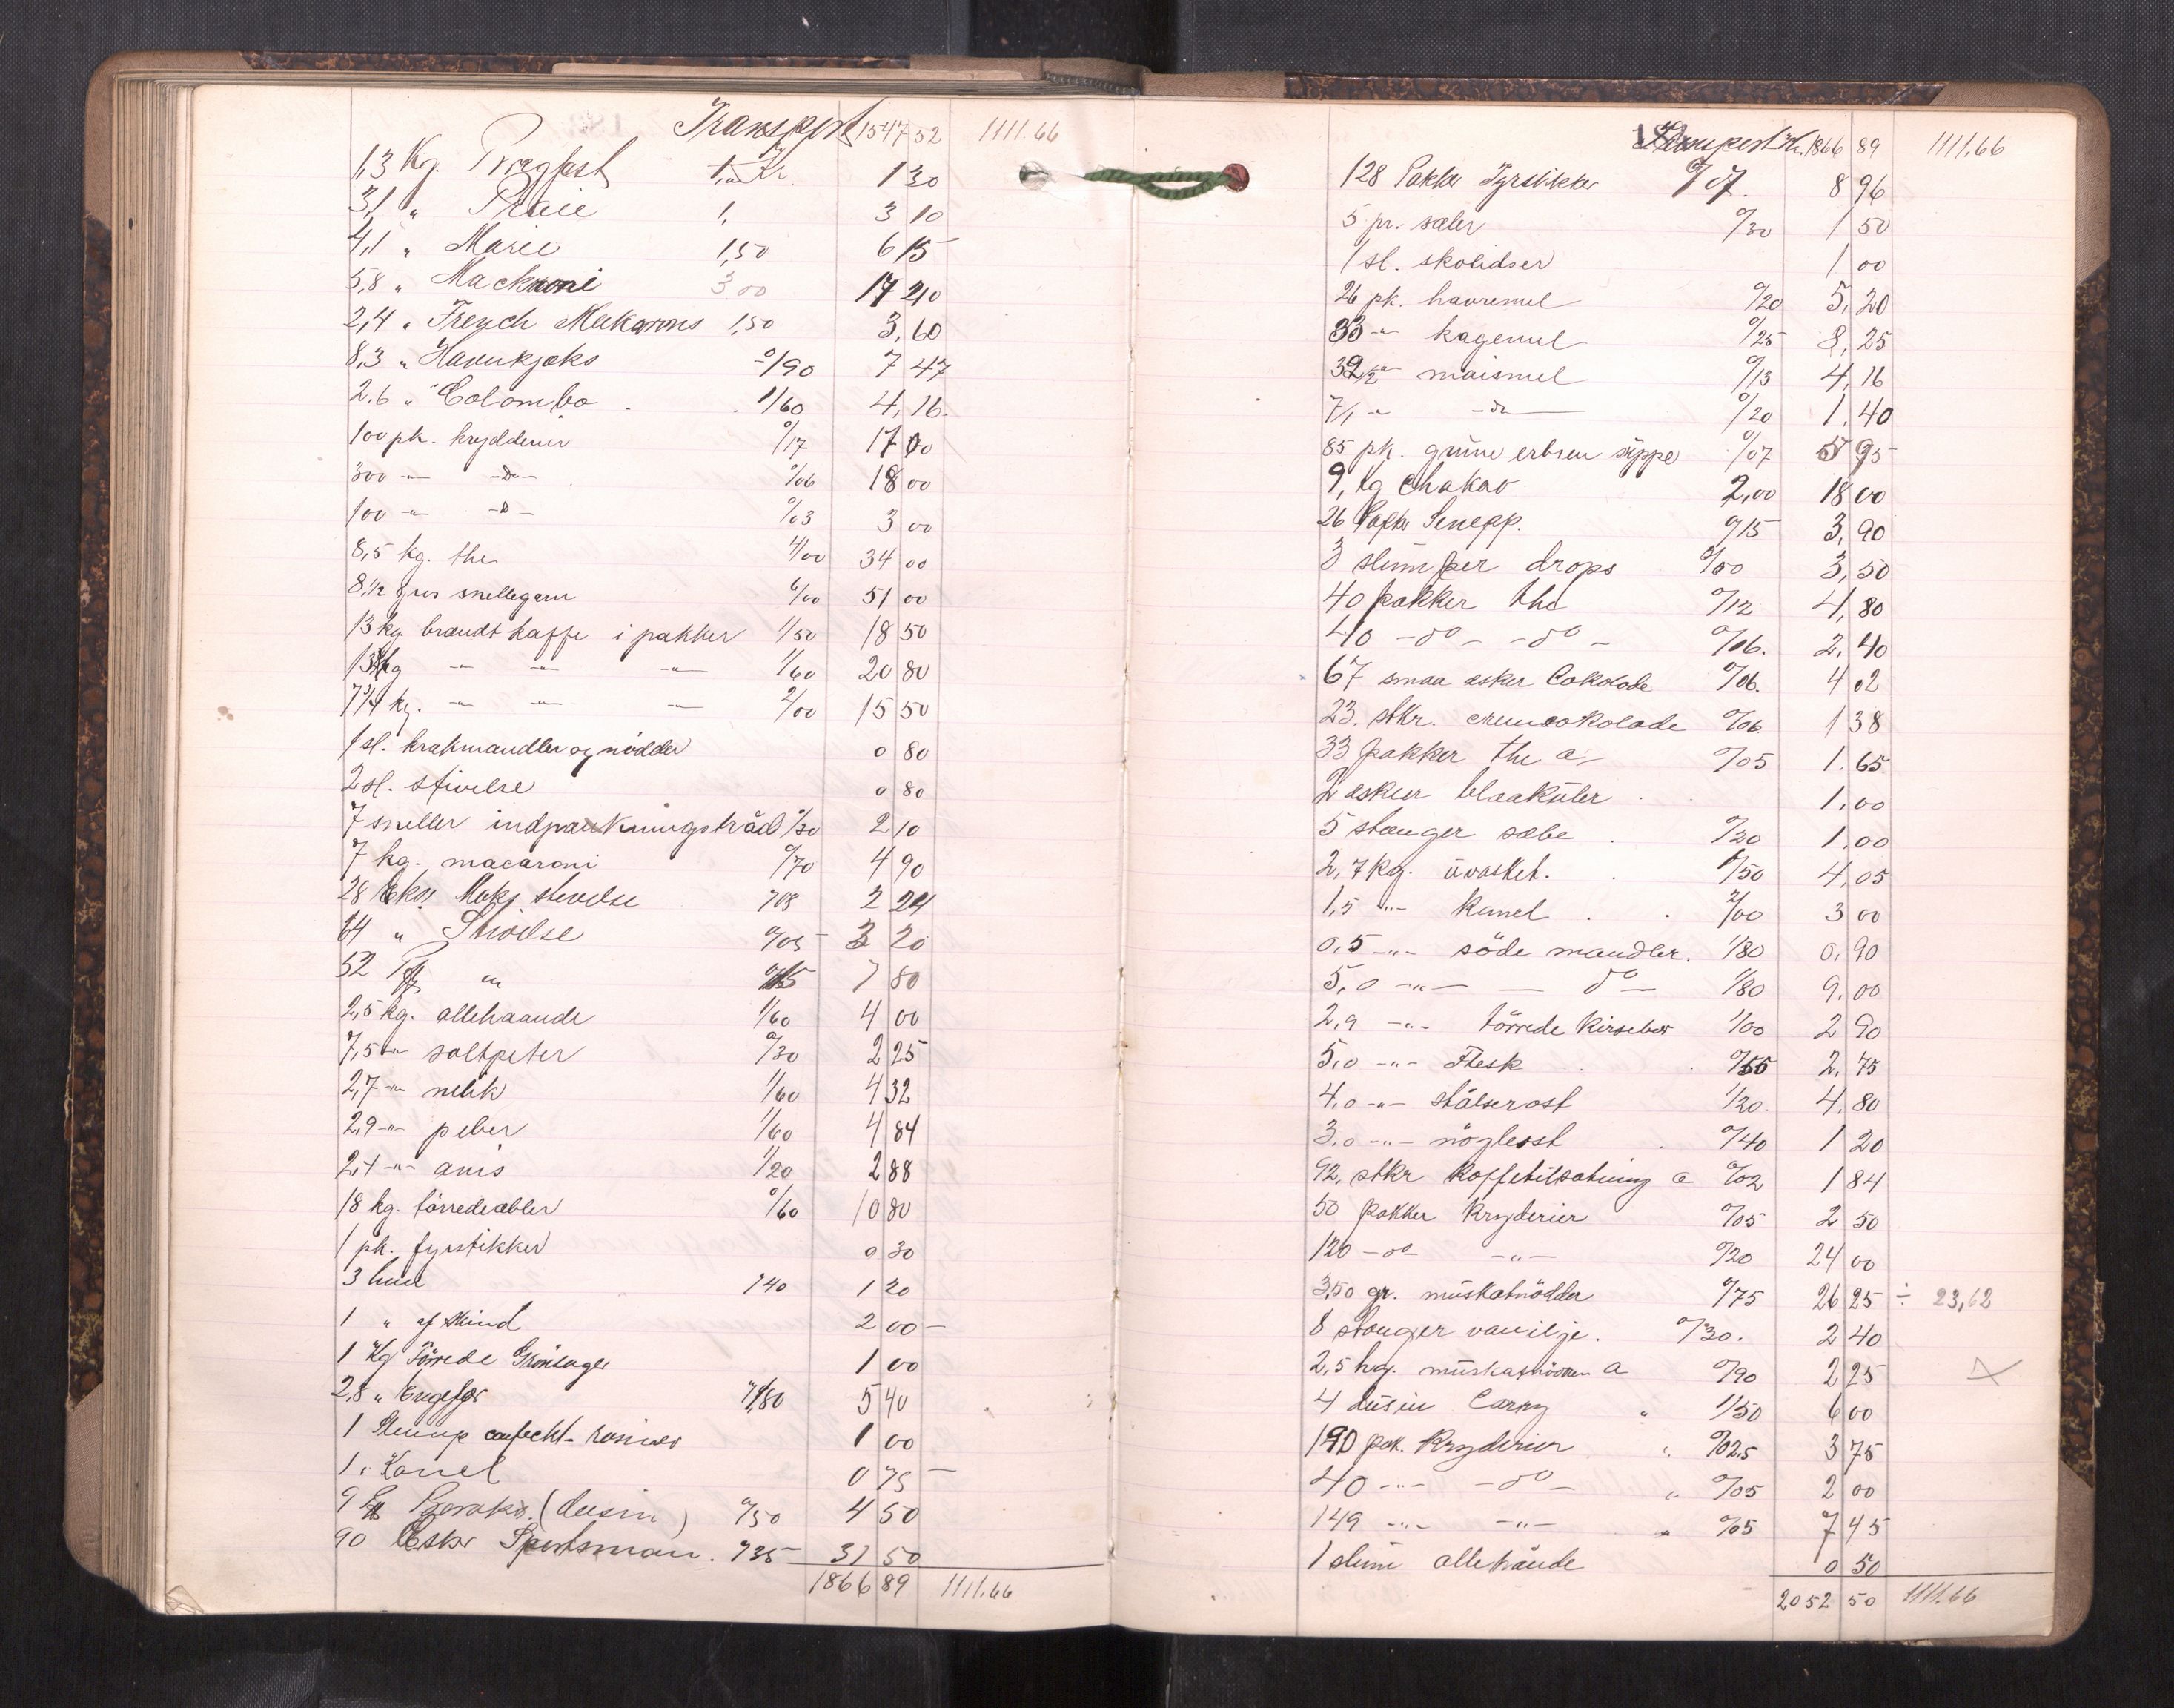 Transport 1547 52 1111.66
1,3 Kg. Prægfest 1,00 Kr. 1 30
3,1 " 1, 3 10
4,1 " Marie 1,50 6 15
5,8 " Mackroni 3 00 17 20
2,4 " French Makarons 1,50 3,60
8,3 " Havrekjæks 0/90 7 47
2,6 " Colombo 1/60 4,16
100 pk. krydderier 0/17 17 00
300 -"- -Do- 0/06 18 00
100 -"- -D- 0/03 3 00
8,5 kg. the 4/00 34 00
8 1/2 snellegarn 6/00 51 00
13 kg brændt kaffe i pakker 1/50 18 50
13 kg -"- -"- -"- 1/60 20 80
7 3/4 kg. -"- -"- -"- 2/00 15 50
1 sl. krakmandler og nödder 0 80
2 sl. stivelse 0 80
7 sneller indpakningstråd 0/30 2 10
7 kg. macaroni 0/70 4 90
28 Esk. Maks stivelse 708 2 24
64 " Stivelse 0/05 3 20
52 " 0/15 7 80
2,5 kg. allehaande 1/60 4 00
7,5 -"- saltpeter 0/30 2 25
2,7 -"- nelik 1/60 4 32
2,9 -"- peber 1/60 4 84
2,4 -"- anis 1/20 2 88
18 kg. törrede æbler 0/60 10 80
1 pk. fyrstikker 0 30
3 huer 740 1 20
1 " af Skind 2 00 -
1 Kg Törrede Grönsager 1 00
2,8 " Engefær 1/80 5 40
1 Slump confecht-rosiner 1 00
1 " Kanel 0 75 -
9 (dusin) 0/50 4 50
90 Esker Sportsman. 735 31 50
1866 89 1111.66
Transport Kr. 1866 89 1111.66
128 Pakker Fyrstikker 0/07. 8 96
5 pr. sæler 0/30 1 50
1 sl. skolidser 1 00
26 pk. havremel 0/20 5,20
33 -"- kagemel 0/25 8,25
32 1/2 -"- maismel 0/13 4,16
7/1 -"- -do- 0/20 1,40
85 pk. grüne erbsen süppe 0/07 5 95
9, kg Chakao 2,00 18 00
26 Pakker Senepp. 0/15 3,90
3 slumper drops 0/50 3,50
40 pakker the 0/12 4,80
40 -do- -do- 0/06. 2,40
67 smaa æsker Cokolade 0/06. 4 02
23. stkr. cremcokolade 0/06 1 38
33 pakker the a 0/05 1.65
2 æsker blaakuler 1,00
5 stænger sæbe 0/20 1,00
2,7 kg. uvasket. 1/50 4,05
1,5 -"- kanel 2/00 3 00
0,5 -"- söde mandler. 1/80 0,90
5,0 -"- - do - 1/80 9.00
2,9 -"- törrede kirsebær 1/00 2 90
5,0 -"- Flesk 0/55 2,75
4,0 -"- 1/20. 4,80
3,0 -"- nöglost 0/40 1 20
92, stkr Kaffetilsætning a 0/02 1 84
50 pakker Kryderier 0/05 2 50
120 -do- -"- 0/20 24 00
3,50 gr. müskatnödder 0/75 26 25 ÷ 23,62
8 stanger vanilje. 0/30. 2 40
2,5 hg. a 0/90 2 25
4 düsin Carry " 1/50 6 00
190 pak. Kryderier " 0/02,5 3 75
40 -"- -do- " 0/05 2 00
149 -"- -"- " 0/05 7 45
1 slum allehånde 0 50
2052 50 1111.66